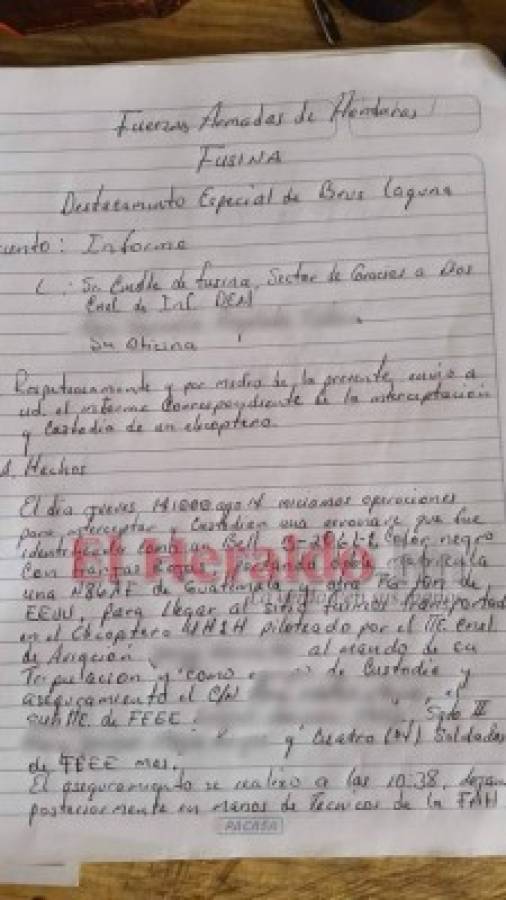 Fuerzas Armadas de Honduras
FUSINA
Destacamento Especial de Brus Laguna
unto: Informe
Sr. Cmdte de fusina, Sector de Gracias a Dios
Cnel de Inf. DEM
Su Oficina
Respetuosamente y por medio de la presente envio a
ud. el informe correspondiente de la interceptación
y Custodia de un elicoptero.
1. Hechos
El dia jueves 141000 ago 14 iniciamos operaciones
para interceptar y Custodiar una aeronave que fue
identificada como un Bell color negro
con franjas
El Heraldo
una N86AF de Guatemala y otra de
EEUU, para llegar al sitio fuimos transportad
en el Elicoptero UH1H piloteado por el TTE. Cnel
de Aviación al mando de su
Tripulación y como de Custodia y
aseguramiento el C/N
subtte. de FFEE. Sgto II
y Cuatro (04) Soldados
de FFEE mas.
El aseguramiento se realizo a las 10:38, dejan
posteriormente en manos de Tecnicos de la FAH
PACASA